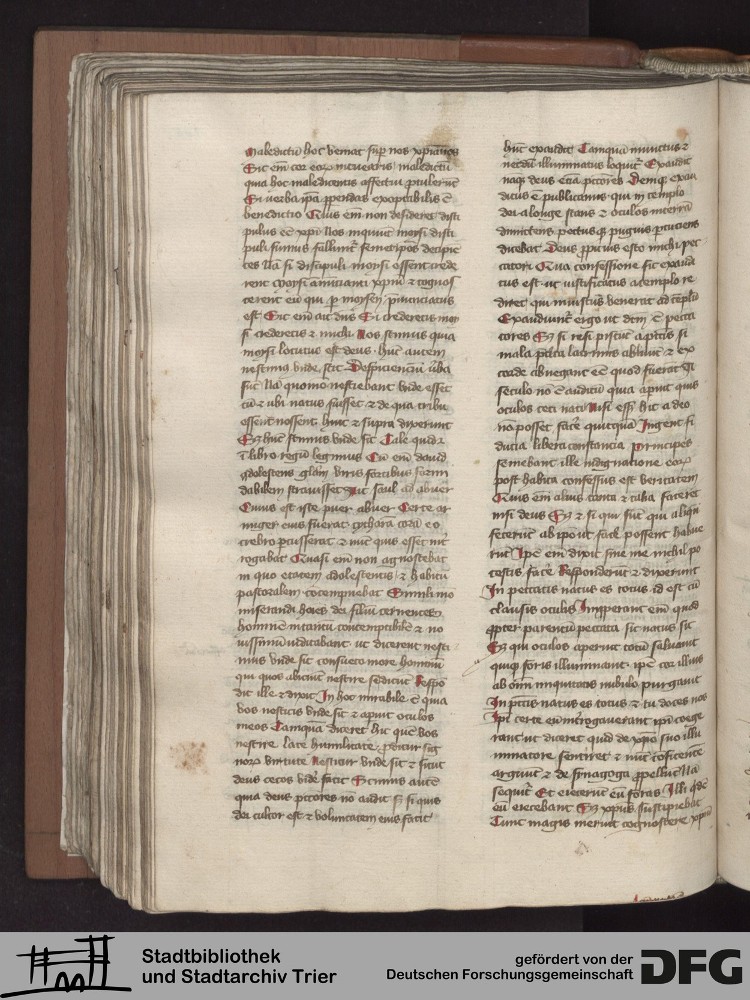 maledictū hoc veniat sup nos xpianos
Sic em̄ cor eoꝝ intuearis maledictū
qua hoc maledicentis affectui ptulerūt
Si verba ipa ppendas exoptabilis ē
benedictio Quis em̄ non desideret disci
pulus eē xpi Nos inquiūt moysi disci
puli sumus fallunt semetipos decipiē
tes Nā si discipuli moysi essent crede
rent moysi annūcianti xpm̄ ⁊ cognos
cerent eū qui p moysen pnunciatus
est Sic em̄ ait dn̄s Si crederetis moy
si crederetis ⁊ michi Nos scimus quia
moysi locutus est deus hūc autem
nescimus vnde sit
sūt Nā quomō nesciebant vnde esset
cū ⁊ ubi natus fuisset ⁊ de qua tribu
essent nossent hinc ⁊ supra dixerunt
Sꝫ hūc scimus vnde sit Tale quid ⁊
ī libro regū legimus Cū em̄ dauid
adolescens goliam viris fortibus formi
dabilem strauisset Ait saul ad abner
Cuius est iste puer abner Certe ar
miger eius fuerat cythara corā eo
crebro pcusserat ⁊ nūc quis esset int̄
rogabat Quasi em̄ non agnoscebat
in quo etatem adolescentis ⁊ habitū
pastoralem cōtempnebat Simili mo
miserandi hoīes dei filiū cernentes
hominē intantū contemptibilē ⁊ no
uissimū iudicabant ut dicerent nesci
mus vnde sit consueto more hominū
qui quos abiciunt nescire se dicūt Respō
dit ille ⁊ dixit In hoc mirabile ē qua
vos nescitis vnde sit ⁊ apuit oculos
meos Tamquā diceret hic quē vos
nescire
noꝝ virtute Nescitur vnde sit ⁊ sicut
deus cecos vidē facit Scimus autē
quia deus pctores nō audit sꝫ si quis
dei cultor est ⁊ voluntatem eius facit
hūc exaudit Tamquā inunctus ⁊
necdū illuminatus loquit Exaudit
naqꝫ deus etiā pctores Deniqꝫ exau
ditus ē publicanus qui in templo
dei a longe stans ⁊ oculos in terrā
dimittens pectusqꝫ pugnis pcuciens
dicebat Deus ppicius esto michi pec
catori Qua confessione sic exaudi
tus est ut iustificatus a templo re
diret qui iniustus venerat ad tēplū
Exaudiunt ergo ut dcm̄ ē pecca
tores Sꝫ si resipiscūt a pctis si
mala pdita lacrimis abluūt ⁊ ex
corde abnegant eē quod fuerāt A
seculo nō ē auditū quia apuit quis
oculos ceci nati Nisi esset hic a deo
nō posset facē quicquā Ingenti fi
ducia libera constancia principes
post habita confessus est veritatem
Quis em̄ alius tanta ⁊ talia faceret
nisi deus Sꝫ ⁊ si qui sūt qui aliqn̄
fecerūt ab ipo ut facē possent habue
rūt Ipe em̄ dixit sine me nichil po
testis facē Responderūt ⁊ dixerunt
In peccatis natus es totus id est cū
clausis oculis Imperant em̄ quod
ppter parentū peccata sic natus sit
Sꝫ qui oculos aperuit totū saluauit
quiqꝫ foris illuminauit ipe cor illius
ab om̄i iniquitatis nubilo purgauit
In pctis natus es totus ⁊ tu doces nos
Ipi certe eū introgauerant ipi coege
rant ut diceret quid de xpō suo illu
minatore sentiret ⁊ nūc cōfitentē
arguūt ⁊ de synagoga ppellūt Nā
sequit Et eiecerūt eū foras Illi qdē
eū eiecebant Sꝫ xpus suscipiebat
Tunc magis meruit cognoscere xpm̄
Stadtbibliothek
und Stadtarchiv Trier
gefördert von der
Deutschen Forschungsgemeinschaft
DFG